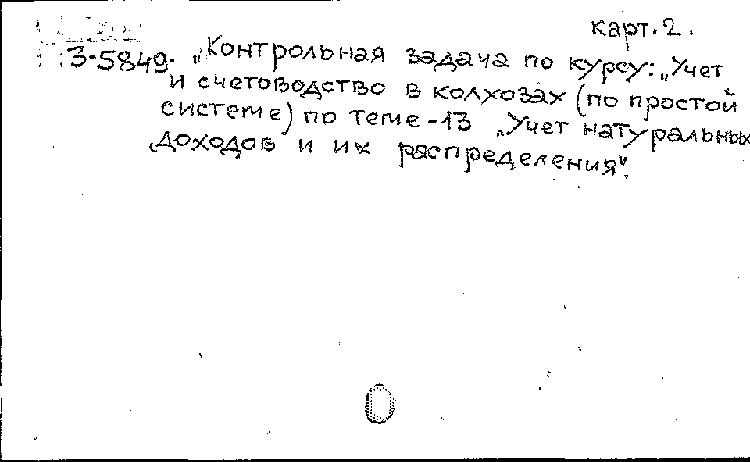 карт. 2.
З-5849. „Контрольная задача по курсу: „Учет
и счетоводство в колхозах (по простой
системе) по теме-13 „Учет натуральных
доходов и их распределения".